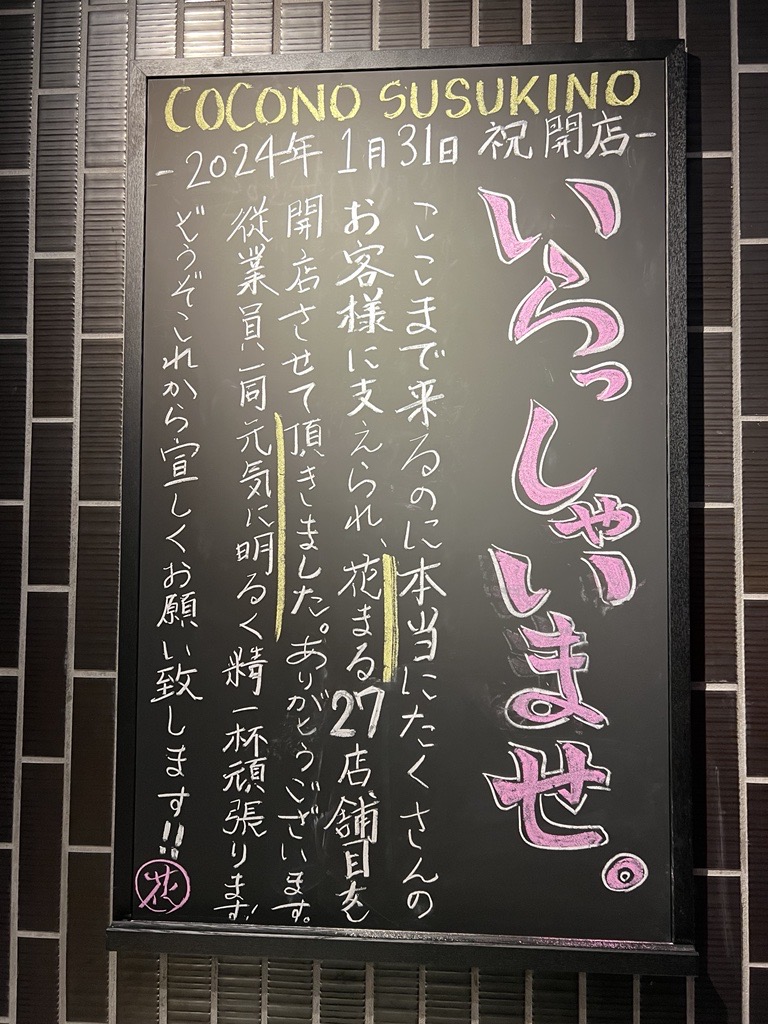 COCONO SUSUKINO
-2024年 1月31日 祝 開店-
いらっしゃいませ。
ここまで来るのに本当にたくさんの
お客様に支えられ、花まる27店舗目を
開店させて頂きました。ありがとうございます。
従業員一同元気に明るく精一杯頑張ります!
どうぞこれから宜しくお願い致します!!
花